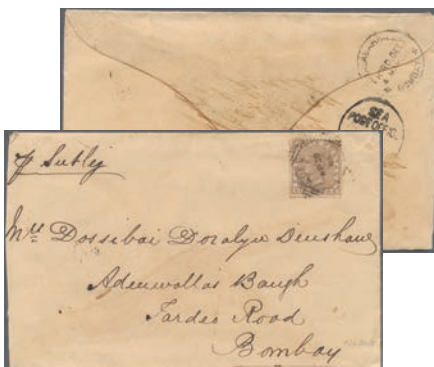 SEA
POST OFFICE
p Sutlej
Mrs Dossibai Doralyn Dinshaw
Adenwallas Baugh
Tardeo Road
Bombay